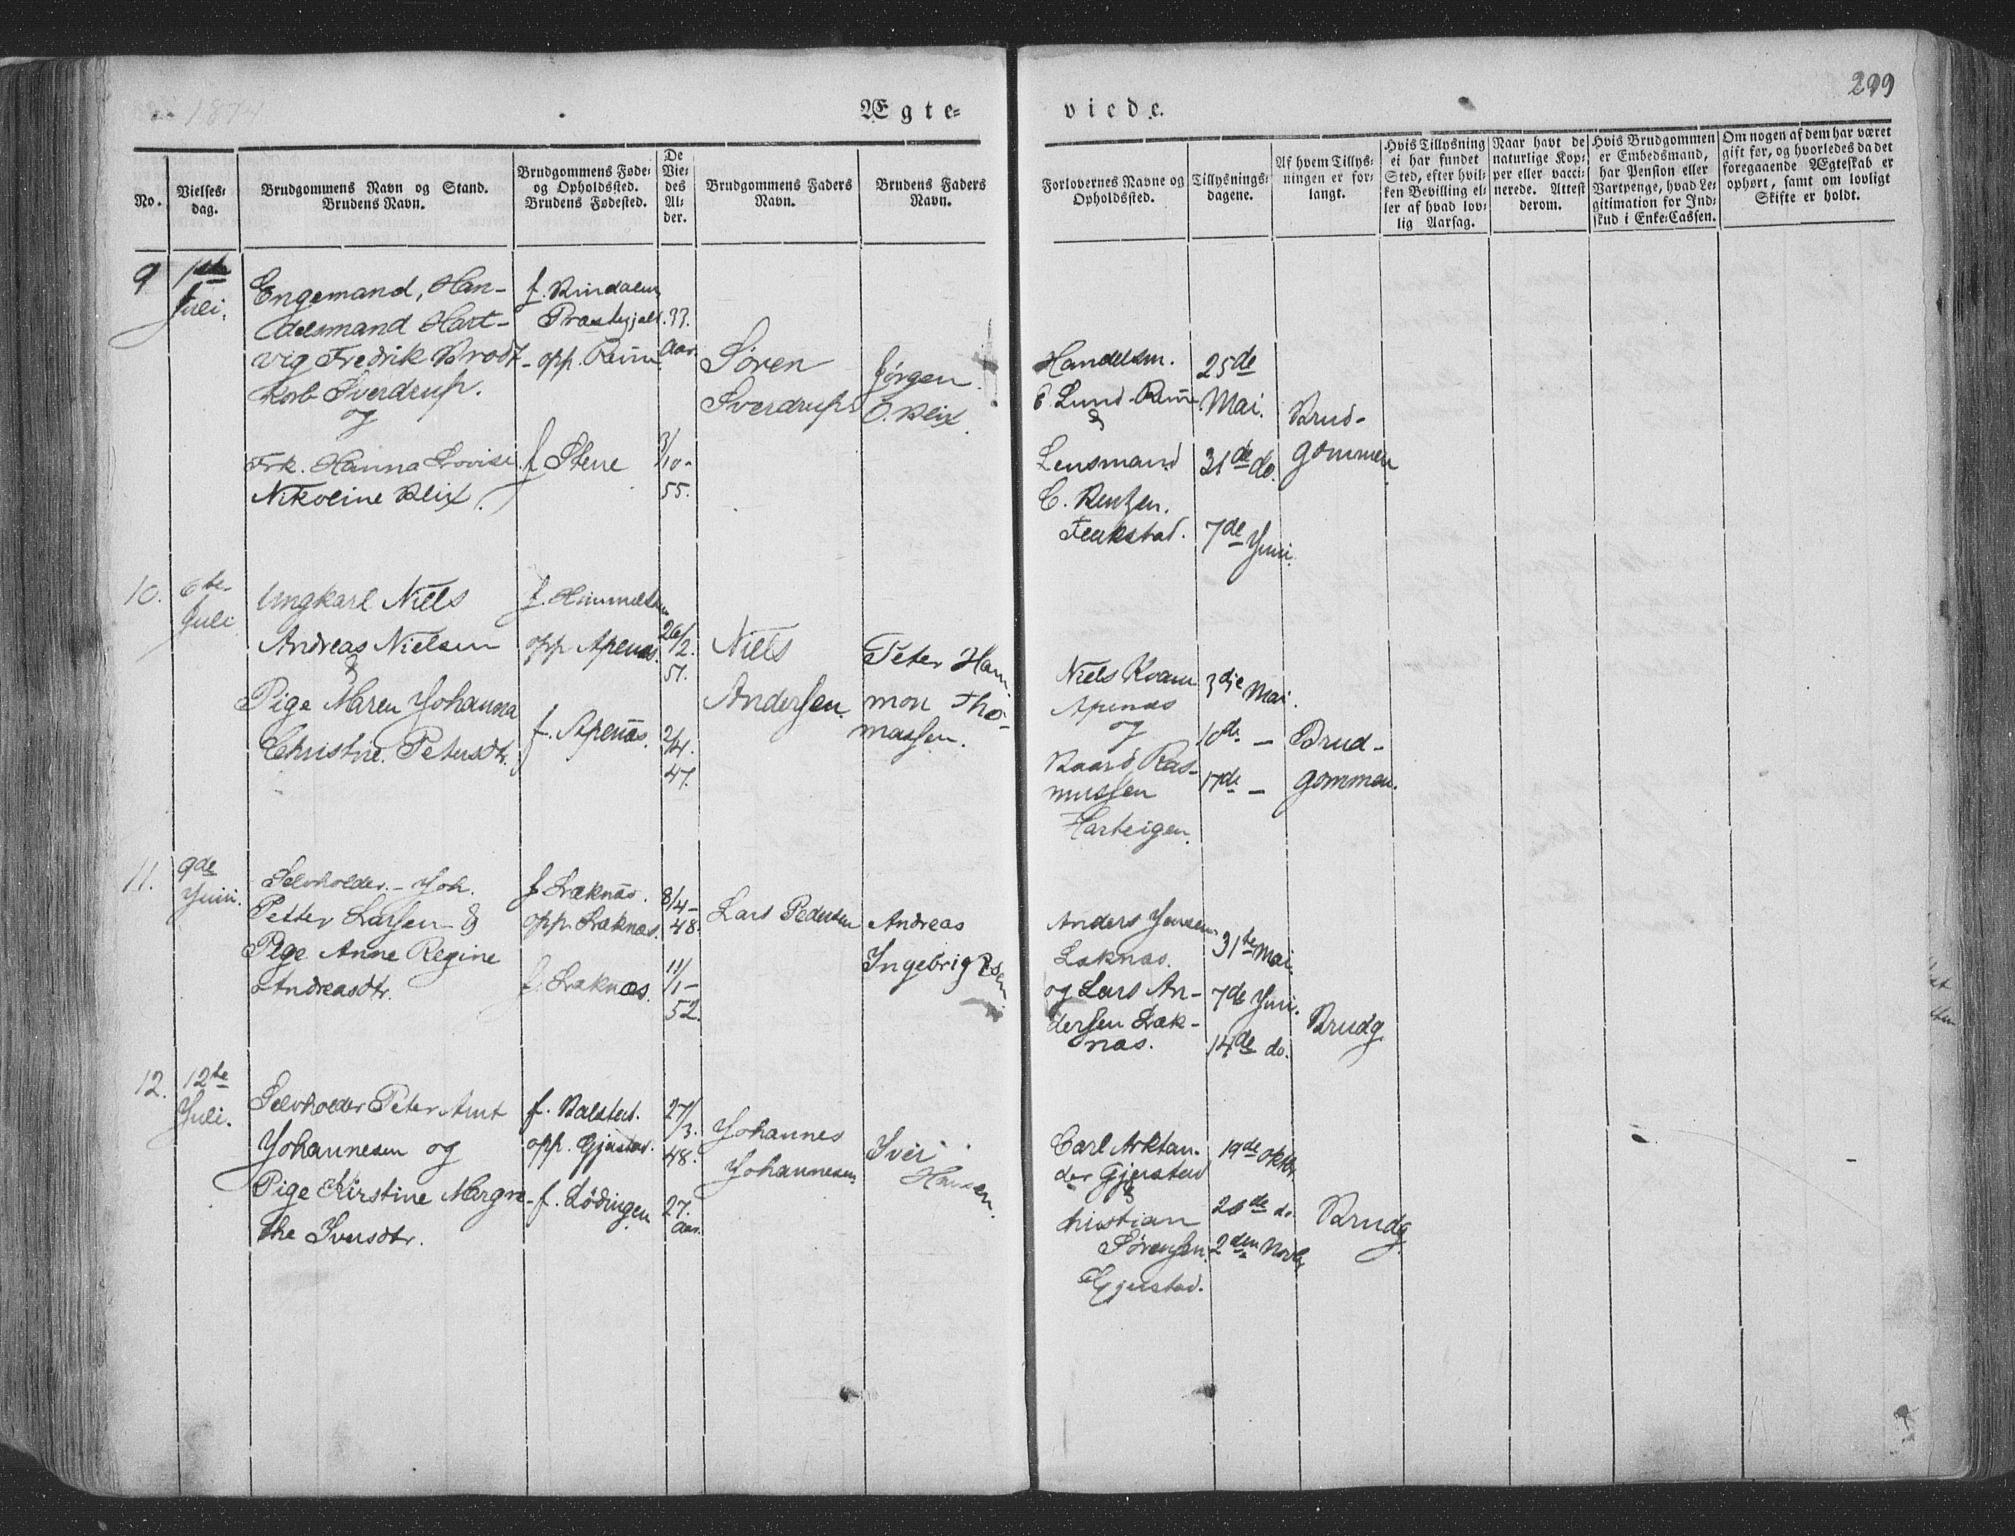 1874
Ægte=
viede.
299
No.
Vielses=
dag.
Brudgommens Navn og Stand.
Brudens Navn.
Brudgommens Føde=
og Opholdssted.
Brudens Fødested.
De
Vie=
des
Al=
der.
Brudgommens Faders
Navn.
Brudens Faders
Navn.
Forlovernes Navne og
Opholdssted.
Tillysnings=
dagene.
Af hvem Tillys=
ningen er for=
langt.
Hvis Tillysning
ei har fundet
Sted, efter hvil=
ken Bevilling el=
ler af hvad lov=
lig Aarsag.
Naar havt de
naturlige Kop=
per eller vacci=
nerede. Attest
derom.
Hvis Brudgommen
er Embedsmand,
har Pension eller
Vartpenge, hvad Le=
gitimation for Ind=
skud i Enke=Cassen.
Om nogen af dem har været
gift før, og hvorledes da det
foregaaende Ægteskab er
ophørt, samt om lovligt
Skifte er holdt.
9
1ste
Juli.
Engemand, Han-
delsmand Hart-
vig Fredrik Brodt-
korb Sverdrup.
og
Frk. Hanna Lovise
Nikoline Blix.
f. Rindalens
Præstegjeld.
opp. Reine
f Stene
33
Aar.
3/10-
55.
Søren
Sverdrup
Jørgen
C. Blix.
Handelsm.
E. Lund Reine
&
Lensmand
C. Bentzen.
Flakstad.
25de
Mai.
31de do.
7de Juni.
Brud-
gommen
10.
6te
Juli
Ungkarl Niels
Andreas Nielsen
&
Pige Maren Johanna
Christine Petersdtr.
f. Himmelsten
opp Apenæs.
f. Apenæs.
26/2.
51.
2/4.
47.
Niels
Andersen.
Peter Ham
mon Tho-
massen.
Niels Kvam
Apenæs
og
Baard Ras-
mussen
Harteigen.
3die Mai.
10de -
17de -
Brud-
gommen.
11.
9de
Juni.
Selvholder.- Joh.
Petter Larsen &
Pige Anne Regine
Andreasdtr.
f Læknæs.
opp. Læknæs.
f. Læknæs.
8/4-
48.
11/1-
52.
Lars Pedersen
Andreas
Ingebrigtsen
Anders Jensen
Læknæs.
og Lars An-
dersen Læk-
næs.
31te Mai.
7de Juni.
14de do.
Brudg
12.
12te
Juli.
Selvholder Peter Arnt
Johannesen og
Pige Kirstine Margre-
the Iversdtr.
f. Balstad.
opp. Gjerstad.
f. Lödingen
27/3.
48.
27.
Aar.
Johannes
Johannesen
Iver
Hansen.
Carl Arktan-
der Gjerstad
&
Christian
Sørensen.
Gjerstad.
19de Oktbr
26de do
2den Novbr
Brudg